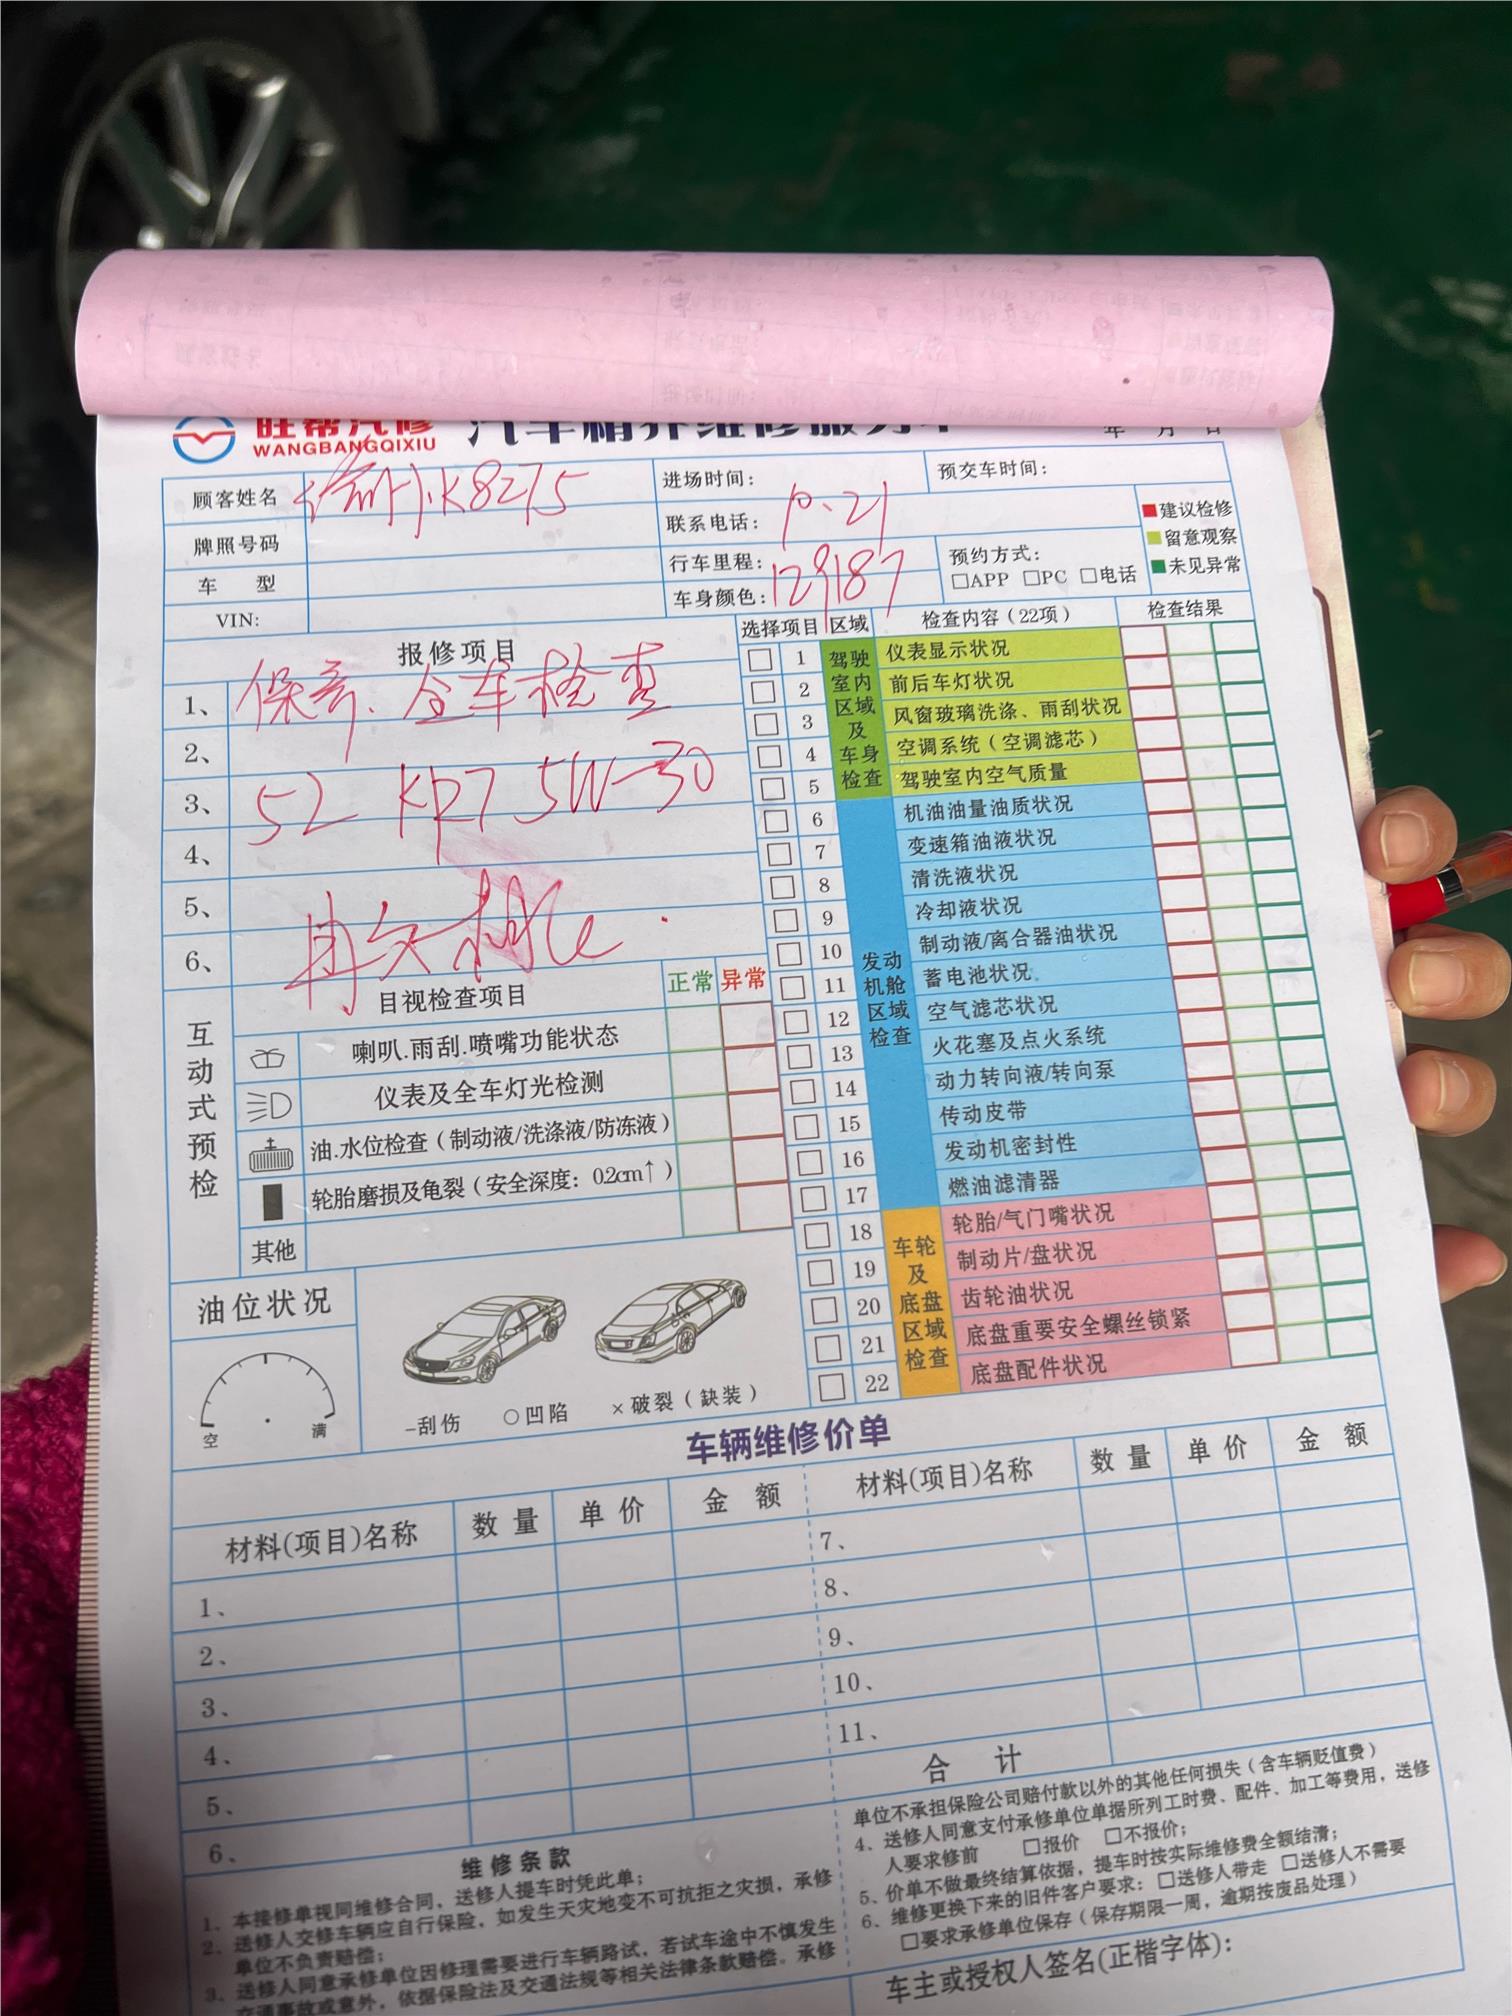 旺帮汽修 汽车精养维修服务单
WANGBANGQIXIU
年 月 日
顾客姓名 K8275
进场时间:
预交车时间:
牌照号码
联系电话: 10.21
车 型
行车里程: 129187
预约方式:
□APP □PC □电话
VIN:
车身颜色:
建议检修
留意观察
未见异常
报修项目
1、 保养、全车检查
2、
3、 5L KP7 5W-30
4、
5、
6、
选择项目 区域 检查内容(22项) 检查结果
驾驶室内区域及车身检查
1 仪表显示状况
2 前后车灯状况
3 风窗玻璃洗涤、雨刮状况
4 空调系统(空调滤芯)
5 驾驶室内空气质量
发动机舱区域检查
6 机油油量油质状况
7 变速箱油液状况
8 清洗液状况
9 冷却液状况
10 制动液/离合器油状况
11 蓄电池状况
12 空气滤芯状况
13 火花塞及点火系统
14 动力转向液/转向泵
15 传动皮带
16 发动机密封性
17 燃油滤清器
车轮及底盘区域检查
18 轮胎/气门嘴状况
19 制动片/盘状况
20 齿轮油状况
21 底盘重要安全螺丝锁紧
22 底盘配件状况
互动式预检
目视检查项目 正常 异常
喇叭.雨刮.喷嘴功能状态
仪表及全车灯光检测
油.水位检查(制动液/洗涤液/防冻液)
轮胎磨损及龟裂(安全深度:02cm↑)
其他
油位状况
空 满
-刮伤 ○凹陷 ×破裂(缺装)
车辆维修价单
材料(项目)名称 数量 单价 金额
1、
2、
3、
4、
5、
6、
材料(项目)名称 数量 单价 金额
7、
8、
9、
10、
11、
合 计
维修条款
1、本接修单视同维修合同,送修人提车时凭此单;
2、送修人交修车辆应自行保险,如发生天灾地变不可抗拒之灾损,承修
单位不负责赔偿;
3、送修人同意承修单位因修理需要进行车辆路试,若试车途中不慎发生
交通事故或意外,依据保险法及交通法规等相关法律条款赔偿。承修
单位不承担保险公司赔付款以外的其他任何损失(含车辆贬值费)
4、送修人同意支付承修单位单据所列工时费、配件、加工等费用,送修
人要求修前 □报价 □不报价;
5、价单不做最终结算依据,提车时按实际维修费全额结清;
6、维修更换下来的旧件客户要求:□送修人带走 □送修人不需要
□要求承修单位保存(保存期限一周,逾期按废品处理)
车主或授权人签名(正楷字体):